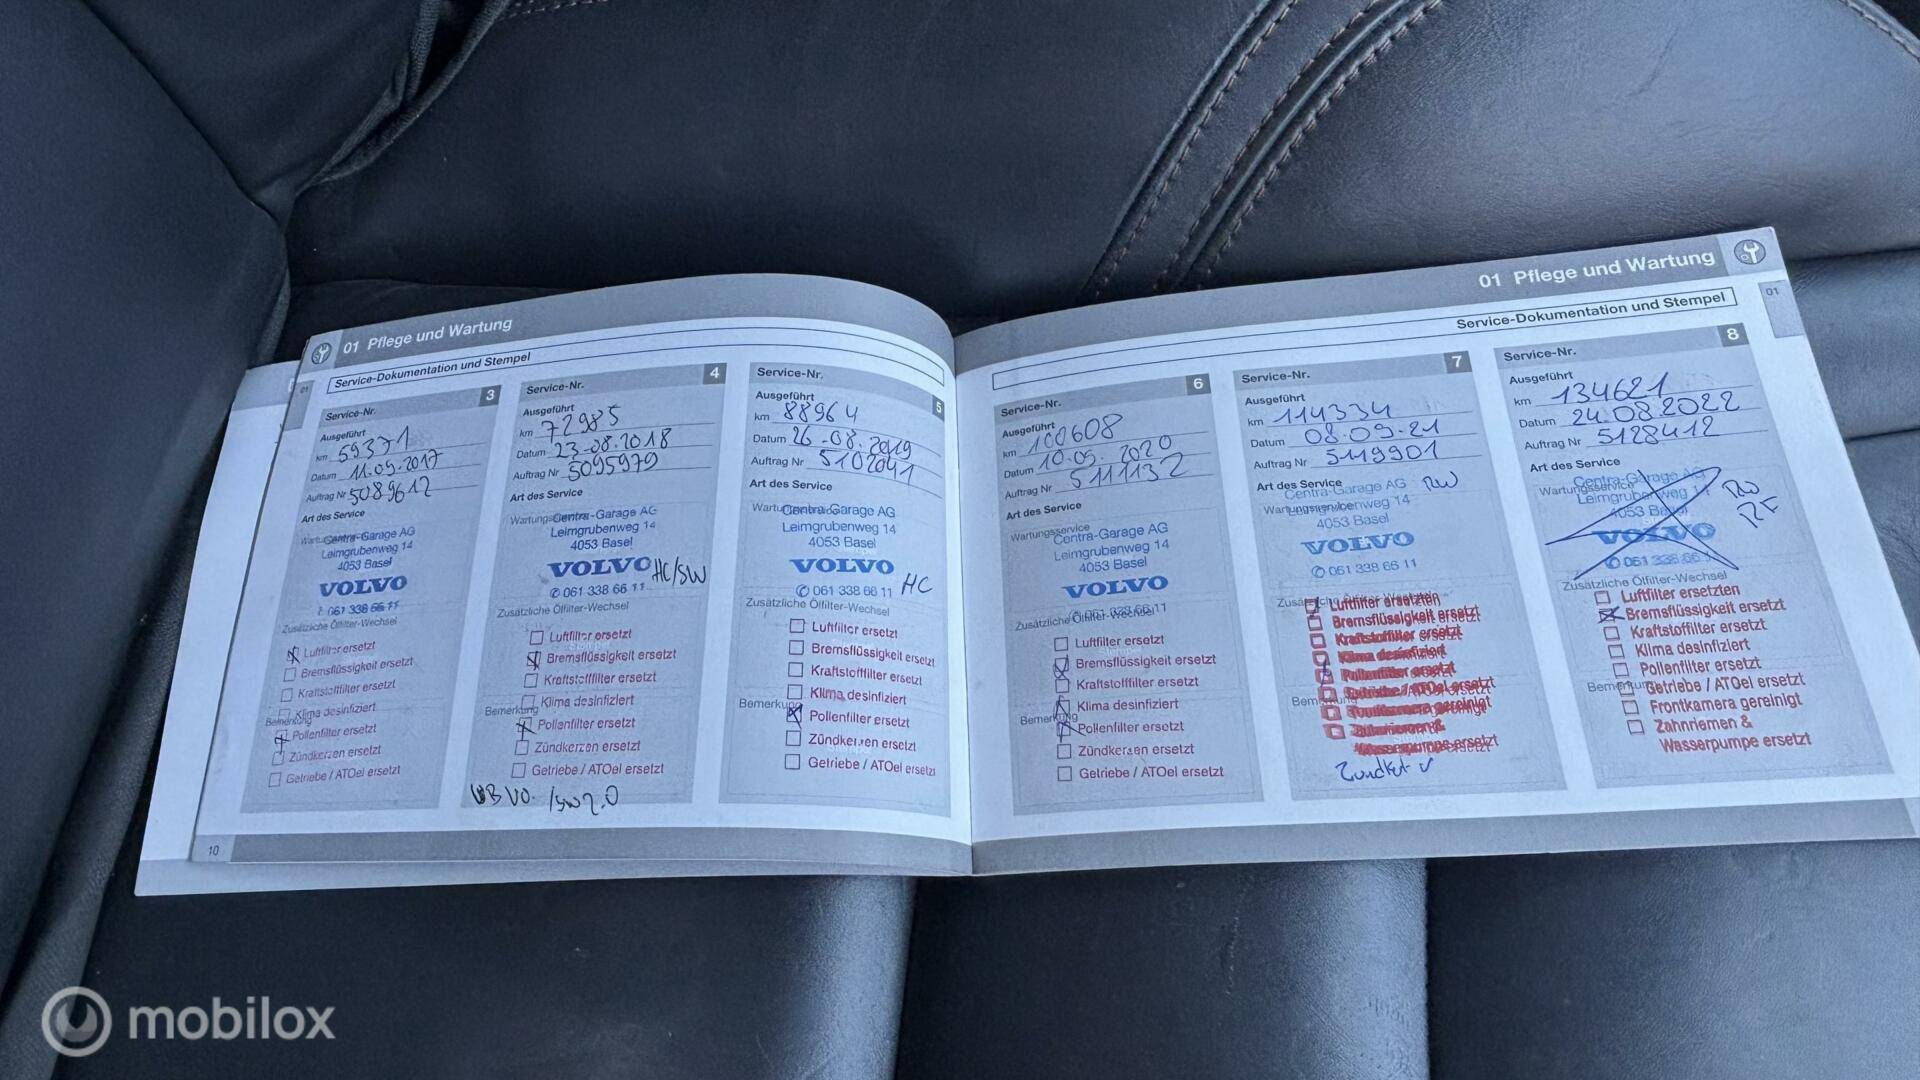 01 Pflege und Wartung
Service-Dokumentation und Stempel
01
Service-Nr. 3
Ausgeführt
km 59371
Datum 11.09.2017
Auftrag Nr 5089612
Art des Service
Centra-Garage AG
Leimgrubenweg 14
4053 Basel
VOLVO
✆ 061 338 66 11
Zusätzliche Ölfilter-Wechsel
Luftfilter ersetzt
Bremsflüssigkeit ersetzt
Kraftstofffilter ersetzt
Klima desinfiziert
Bemerkung
Pollenfilter ersetzt
Zündkerzen ersetzt
Getriebe / ATOel ersetzt
10
Service-Nr. 4
Ausgeführt
km 72985
Datum 23-08-2018
Auftrag Nr 5095979
Art des Service
Centra-Garage AG
Leimgrubenweg 14
4053 Basel
VOLVO HC/SW
✆ 061 338 66 11
Zusätzliche Ölfilter-Wechsel
Luftfilter ersetzt
Bremsflüssigkeit ersetzt
Kraftstofffilter ersetzt
Klima desinfiziert
Bemerkung
Pollenfilter ersetzt
Zündkerzen ersetzt
Getriebe / ATOel ersetzt
Service-Nr. 5
Ausgeführt
km 88964
Datum 26-08.2019
Auftrag Nr 5102041
Art des Service
Centra-Garage AG
Leimgrubenweg 14
4053 Basel
VOLVO
✆ 061 338 66 11 HC
Zusätzliche Ölfilter-Wechsel
Luftfilter ersetzt
Bremsflüssigkeit ersetzt
Kraftstofffilter ersetzt
Klima desinfiziert
Bemerkung
Pollenfilter ersetzt
Zündkerzen ersetzt
Getriebe / ATOel ersetzt
01 Pflege und Wartung
Service-Dokumentation und Stempel
01
Service-Nr. 6
Ausgeführt
km 100608
Datum 10.09.2020
Auftrag Nr 5111132
Art des Service
Wartungsservice
Centra-Garage AG
Leimgrubenweg 14
4053 Basel
VOLVO
✆ 061 338 66 11
Zusätzliche Ölfilter-Wechsel
Luftfilter ersetzt
Bremsflüssigkeit ersetzt
Kraftstofffilter ersetzt
Klima desinfiziert
Bemerkung
Pollenfilter ersetzt
Zündkerzen ersetzt
Getriebe / ATOel ersetzt
Service-Nr. 7
Ausgeführt
km 114334
Datum 08.09.21
Auftrag Nr 5119901
Art des Service
Centra-Garage AG
Wartungsservice
4053 Basel
VOLVO
✆ 061 338 66 11
Luftfilter ersetzten
Bremsflüssigkeit ersetzt
Kraftstofffilter ersetzt
Klima desinfiziert
Pollenfilter ersetzt
Service-Nr. 8
Ausgeführt
km 134621
Datum 24.08.2022
Auftrag Nr 5128412
Art des Service
Wartungsservice
Centra-Garage AG
Leimgrubenweg 14
4053 Basel
VOLVO
✆ 061 338 66 11
Zusätzliche Ölfilter-Wechsel
Luftfilter ersetzten
Bremsflüssigkeit ersetzt
Kraftstofffilter ersetzt
Klima desinfiziert
Pollenfilter ersetzt
Bemerkung
Getriebe / ATOel ersetzt
Frontkamera gereinigt
Zahnriemen &
Wasserpumpe ersetzt
mobilox